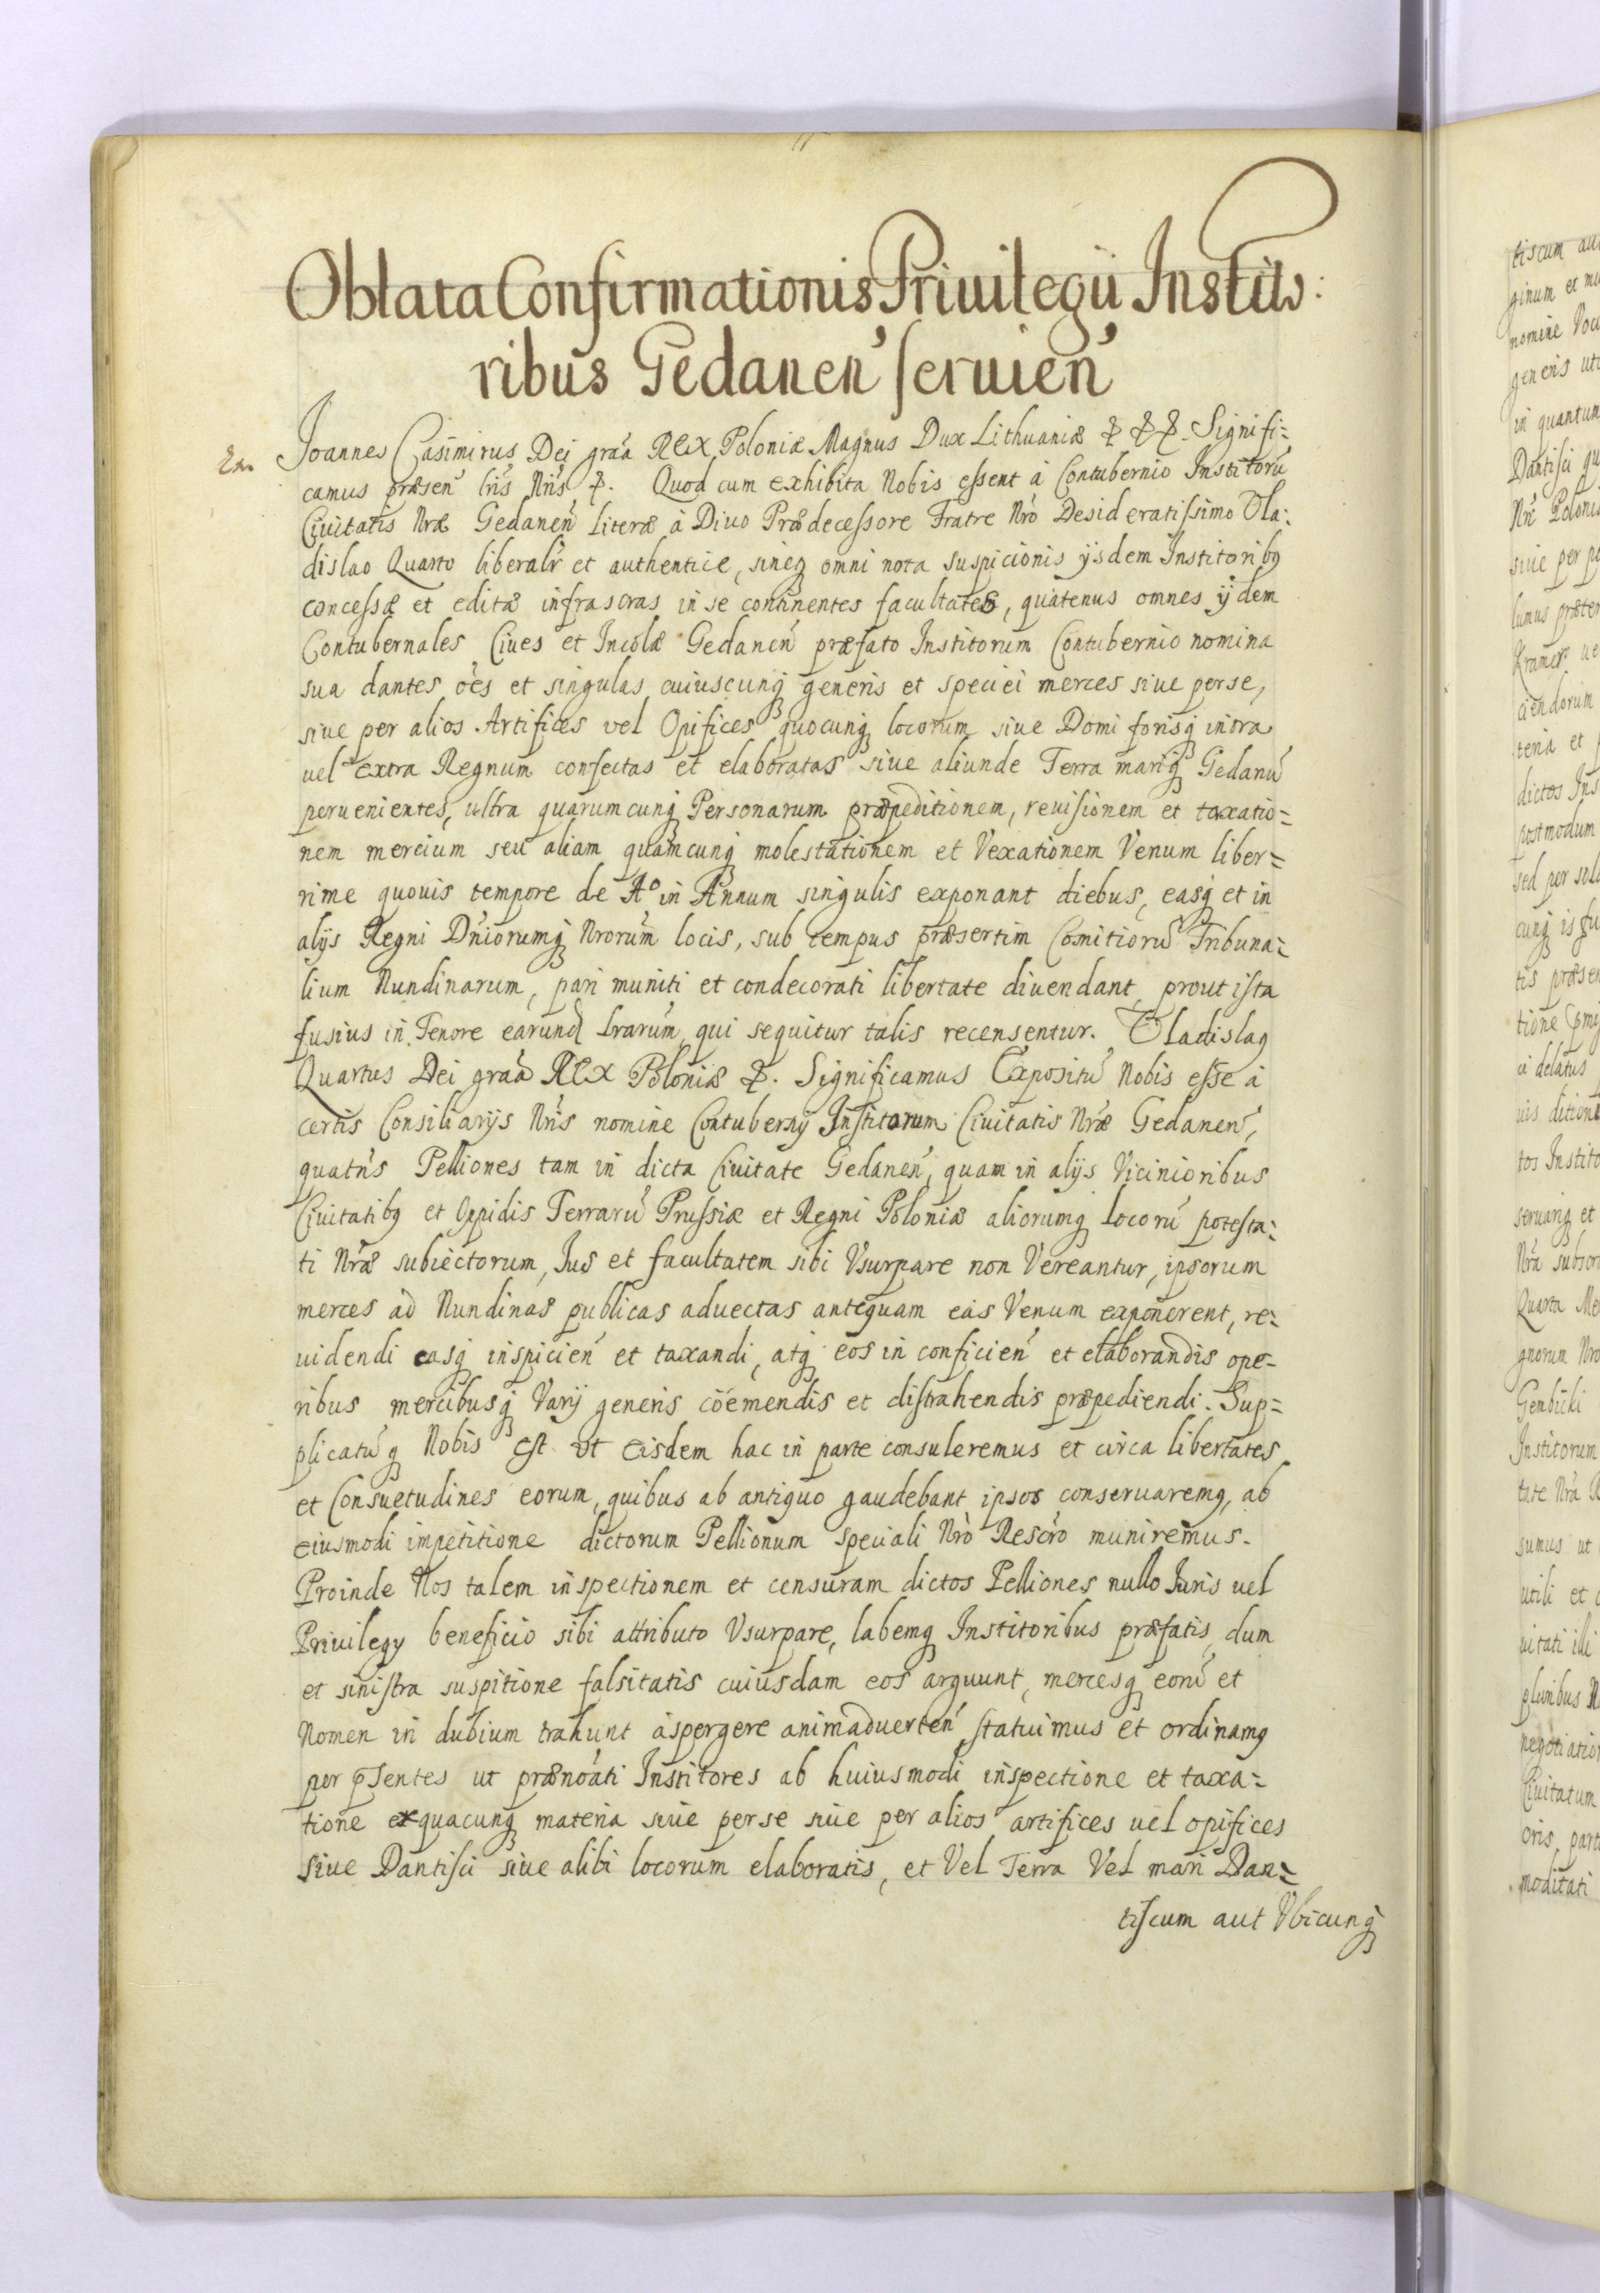 Oblata Confirmationis Priuilegÿ Instito:
ribus Gedanen̄ seruien̄
Ioannes Casimirus Dei grãa REX Poloniæ Magnus Dux Lithuaniæ &c &c &c. Signifi=
camus præsen̄ lr̃is Nr̃is &c. Quod cum exhibita Nobis essent à Contubernio Institorũ
Ciuitatis Nr̃æ Gedanen̄ literæ à Diuo Prædecessore Fratre Nrõ Desideratissimo Vla:
dislao Quarto liberalr̃ et authentice, sineq; omni nota suspicionis ijsdem Institoribq
concessæ et editæ infrascras in se continentes facultates, quatenus omnes ijdem
Contubernales Ciues et Incolæ Gedanen̄ præfato Institorum Contubernio nomina
sua dantes oẽs et singulas cuiuscunq; generis et speciei merces siue per se,
siue per alios Artifices vel Opifices quocunq; locorum siue Domi forisq; intra
uel extra Regnum confectas et elaboratas siue aliunde Terra mariq; Gedanũ
peruenientes, ultra quarumcunq; Personarum præpeditionem, reuisionem et taxatio=
nem mercium seu aliam quamcunq; molestationem et Vexationem Venum liber=
rime quouis tempore de Aº in Annum singulis exponant diebus, easq; et in
alijs Regni Dñiorumq; Nrorũm locis, sub tempus præsertim Comitiorũ Tribuna=
lium Nundinarum, pari muniti et condecorati libertate diuendant, prout ista
fusius in Tenore earund Lrarũm, qui sequitur talis recensentur. Vladislaq
Quartus Dei grãa REX Poloniæ &c. Significamus Expositũ Nobis esse à
certis Consiliarijs Nr̃is nomine Contubernij Institorum Ciuitatis Nr̃æ Gedanen̄,
quatñs Pelliones tam in dicta Ciuitate Gedanen̄, quam in alijs Vicinioribus
Ciuitatibq et Oppidis Terrarũ Prussiæ et Regni Poloniæ aliorumq; locorũ potesta:
ti Nr̃æ subiectorum, Jus et facultatem sibi Vsurpare non Vereantur, ipsorum
merces ad Nundinas publicas aduectas antequam eas Venum exponerent, re:
uidendi easq; inspicien̄ et taxandi, atq; eos in conficien̄ et elaborandis ope-
ribus mercibusq; Varij generis coëmendis et distrahendis præpediendi. Sup=
plicatũq; Nobis est ut eisdem hac in parte consuleremus et circa libertates
et Consuetudines eorum, quibus ab antiquo gaudebant ipsos conseruaremq, ab
eiusmodi impetitione dictorum Pellionum speciali Nrò Rescrõ muniremus.
Proinde Nos talem inspectionem et censuram dictos Pelliones nullo Juris uel
Priuilegy beneficio sibi attributo Vsurpare, labemq; Institoribus præfatis, dum
et sinistra suspitione falsitatis cuiusdam eos arguunt, mercesq; eorũ et
Nomen in dubium trahunt aspergere animaduerten̄ statuimus et ordinamq
per p̃sentes ut prænoãti Institores ab huiusmodi inspectione et taxa=
tione ex quacunq; materia siue per se siue per alios artifices uel opifices
siue Dantisci siue alibi locorum elaboratis, et Vel Terra Vel mari Dan=
tiscum aut Vbicunq;
tiscum
nomine
generis
in quantum
Dantisci
siue per
lumus
ciendorum
teria et
dictos
postmodum
sed per
tione
ei delatus
uis
tos
Quarta
gnorum
Gembicki
Institorum
sumus ut
utili et
pluribus
Ciuitatum
oris
moditati